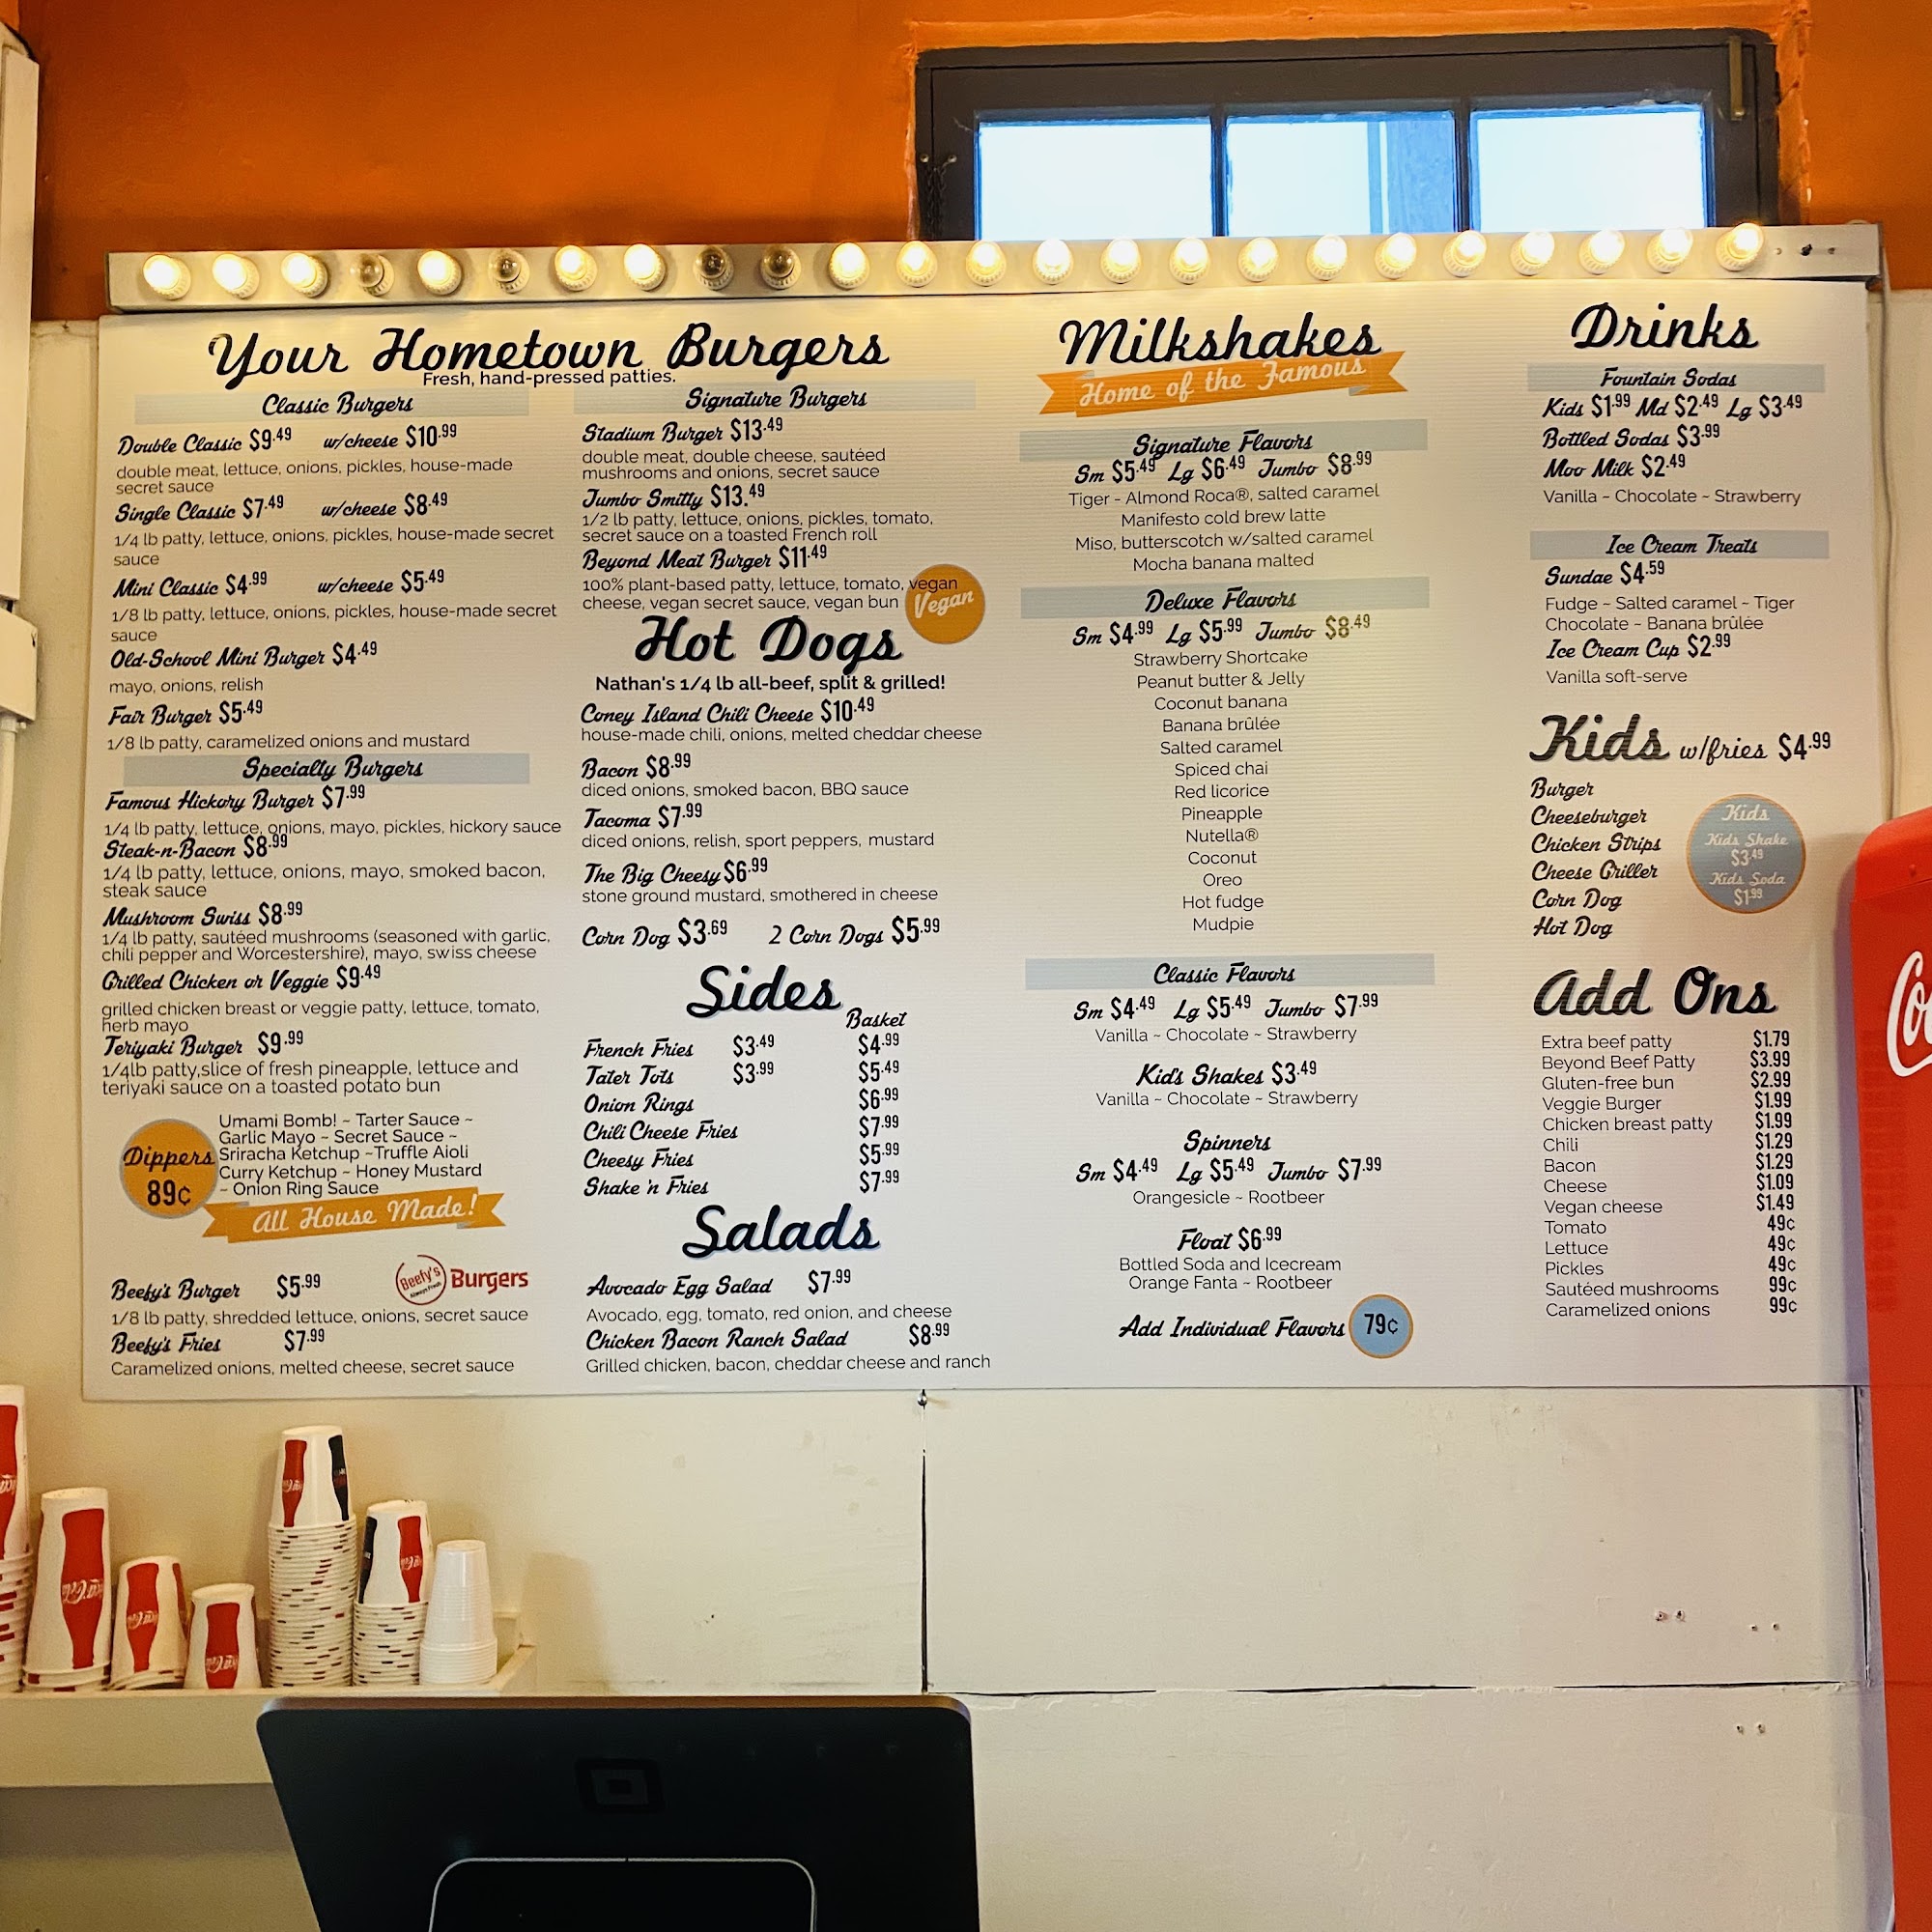 Your Hometown Burgers
Fresh, hand-pressed patties.
Classic Burgers
Double Classic $9.49 w/cheese $10.99
double meat, lettuce, onions, pickles, house-made
secret sauce
Single Classic $7.49 w/cheese $8.49
1/4 lb patty, lettuce, onions, pickles, house-made secret
sauce
Mini Classic $4.99 w/cheese $5.49
1/8 lb patty, lettuce, onions, pickles, house-made secret
sauce
Old-School Mini Burger $4.49
mayo, onions, relish
Fair Burger $5.49
1/8 lb patty, caramelized onions and mustard
Specialty Burgers
Famous Hickory Burger $7.99
1/4 lb patty, lettuce, onions, mayo, pickles, hickory sauce
Steak-n-Bacon $8.99
1/4 lb patty, lettuce, onions, mayo, smoked bacon,
steak sauce
Mushroom Swiss $8.99
1/4 lb patty, sautéed mushrooms (seasoned with garlic,
chili pepper and Worcestershire), mayo, swiss cheese
Grilled Chicken or Veggie $9.49
grilled chicken breast or veggie patty, lettuce, tomato,
herb mayo
Teriyaki Burger $9.99
1/4lb patty,slice of fresh pineapple, lettuce and
teriyaki sauce on a toasted potato bun
Dippers
89¢
Umami Bomb! ~ Tarter Sauce ~
Garlic Mayo ~ Secret Sauce ~
Sriracha Ketchup ~Truffle Aioli
Curry Ketchup ~ Honey Mustard
~ Onion Ring Sauce
All House Made!
Beefy's
Always Fresh
Burgers
Beefy's Burger $5.99
1/8 lb patty, shredded lettuce, onions, secret sauce
Beefy's Fries $7.99
Caramelized onions, melted cheese, secret sauce
Signature Burgers
Stadium Burger $13.49
double meat, double cheese, sautéed
mushrooms and onions, secret sauce
Jumbo Smitty $13.49
1/2 lb patty, lettuce, onions, pickles, tomato,
secret sauce on a toasted French roll
Beyond Meat Burger $11.49
100% plant-based patty, lettuce, tomato, vegan
cheese, vegan secret sauce, vegan bun
Vegan
Hot Dogs
Nathan's 1/4 lb all-beef, split & grilled!
Coney Island Chili Cheese $10.49
house-made chili, onions, melted cheddar cheese
Bacon $8.99
diced onions, smoked bacon, BBQ sauce
Tacoma $7.99
diced onions, relish, sport peppers, mustard
The Big Cheesy $6.99
stone ground mustard, smothered in cheese
Corn Dog $3.69 2 Corn Dogs $5.99
Sides
Basket
French Fries $3.49 $4.99
Tater Tots $3.99 $5.49
Onion Rings $6.99
Chili Cheese Fries $7.99
Cheesy Fries $5.99
Shake 'n Fries $7.99
Salads
Avocado Egg Salad $7.99
Avocado, egg, tomato, red onion, and cheese
Chicken Bacon Ranch Salad $8.99
Grilled chicken, bacon, cheddar cheese and ranch
Milkshakes
Home of the Famous
Signature Flavors
Sm $5.49 Lg $6.49 Jumbo $8.99
Tiger - Almond Roca®, salted caramel
Manifesto cold brew latte
Miso, butterscotch w/salted caramel
Mocha banana malted
Deluxe Flavors
Sm $4.99 Lg $5.99 Jumbo $8.49
Strawberry Shortcake
Peanut butter & Jelly
Coconut banana
Banana brûlée
Salted caramel
Spiced chai
Red licorice
Pineapple
Nutella®
Coconut
Oreo
Hot fudge
Mudpie
Classic Flavors
Sm $4.49 Lg $5.49 Jumbo $7.99
Vanilla ~ Chocolate ~ Strawberry
Kid's Shakes $3.49
Vanilla ~ Chocolate ~ Strawberry
Spinners
Sm $4.49 Lg $5.49 Jumbo $7.99
Orangesicle ~ Rootbeer
Float $6.99
Bottled Soda and Icecream
Orange Fanta ~ Rootbeer
Add Individual Flavors 79¢
Drinks
Fountain Sodas
Kids $1.99 Md $2.49 Lg $3.49
Bottled Sodas $3.99
Moo Milk $2.49
Vanilla ~ Chocolate ~ Strawberry
Ice Cream Treats
Sundae $4.59
Fudge ~ Salted caramel ~ Tiger
Chocolate ~ Banana brûlée
Ice Cream Cup $2.99
Vanilla soft-serve
Kids w/fries $4.99
Burger
Cheeseburger
Chicken Strips
Cheese Griller
Corn Dog
Hot Dog
Kids
Kids Shake
$3.49
Kids Soda
$1.99
Add Ons
Extra beef patty $1.79
Beyond Beef Patty $3.99
Gluten-free bun $2.99
Veggie Burger $1.99
Chicken breast patty $1.99
Chili $1.29
Bacon $1.29
Cheese $1.09
Vegan cheese $1.49
Tomato 49¢
Lettuce 49¢
Pickles 49¢
Sautéed mushrooms 99¢
Caramelized onions 99¢
Co
Coca-Cola
Coca-Cola
Coca-Cola